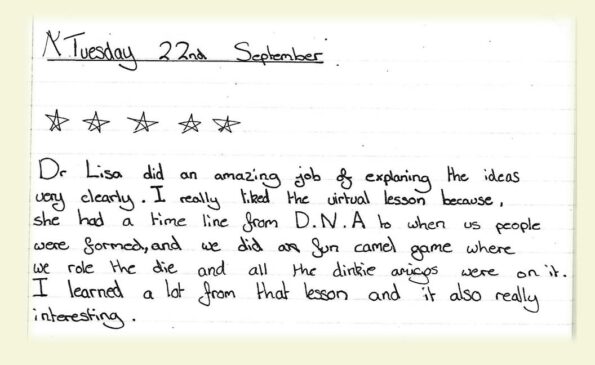 Tuesday 22nd September
Dr Lisa did an amazing job of explaning the ideas
very clearly. I really liked the virtual lesson because,
she had a time line from D.N.A to when us people
were formed, and we did a fun camel game where
we role the die and all the dinkie amigos were on it.
I learned a lot from that lesson and it also really
interesting.